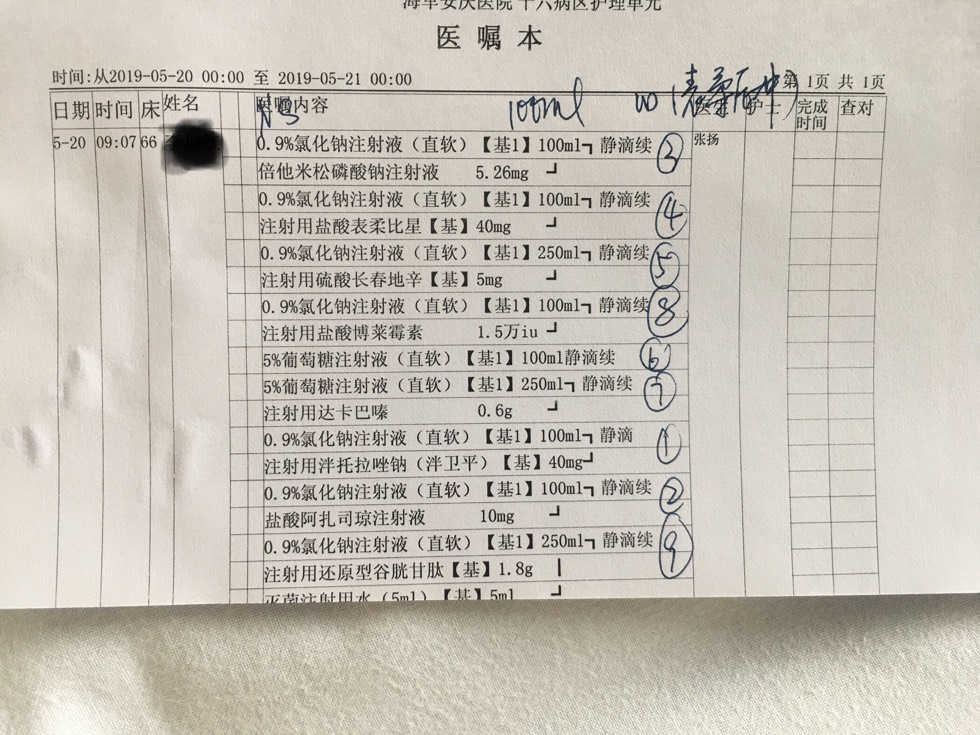 海军安庆医院 十六病区护理单元
医 嘱 本
时间:从2019-05-20 00:00 至 2019-05-21 00:00
第 1页 共 1页
NS 100ml
日期 时间 床 姓名 医嘱内容 医生 护士 完成时间 查对
5-20 09:07 66 0.9%氯化钠注射液（直软）【基1】100ml┓ 静滴续 ③ 张扬
倍他米松磷酸钠注射液 5.26mg ┛
0.9%氯化钠注射液（直软）【基1】100ml┓ 静滴续 ④
注射用盐酸表柔比星【基】40mg ┛
0.9%氯化钠注射液（直软）【基1】250ml┓ 静滴续 ⑤
注射用硫酸长春地辛【基】5mg ┛
0.9%氯化钠注射液（直软）【基1】100ml┓ 静滴续 ⑧
注射用盐酸博莱霉素 1.5万iu ┛
5%葡萄糖注射液（直软）【基1】100ml静滴续 ⑥
5%葡萄糖注射液（直软）【基1】250ml┓ 静滴续 ⑦
注射用达卡巴嗪 0.6g ┛
0.9%氯化钠注射液（直软）【基1】100ml┓ 静滴 ①
注射用泮托拉唑钠（泮卫平）【基】40mg┛
0.9%氯化钠注射液（直软）【基1】100ml┓ 静滴续 ②
盐酸阿扎司琼注射液 10mg ┛
0.9%氯化钠注射液（直软）【基1】250ml┓ 静滴续 ⑨
注射用还原型谷胱甘肽【基】1.8g ┃
灭菌注射用水（5ml）【基】5ml ┛